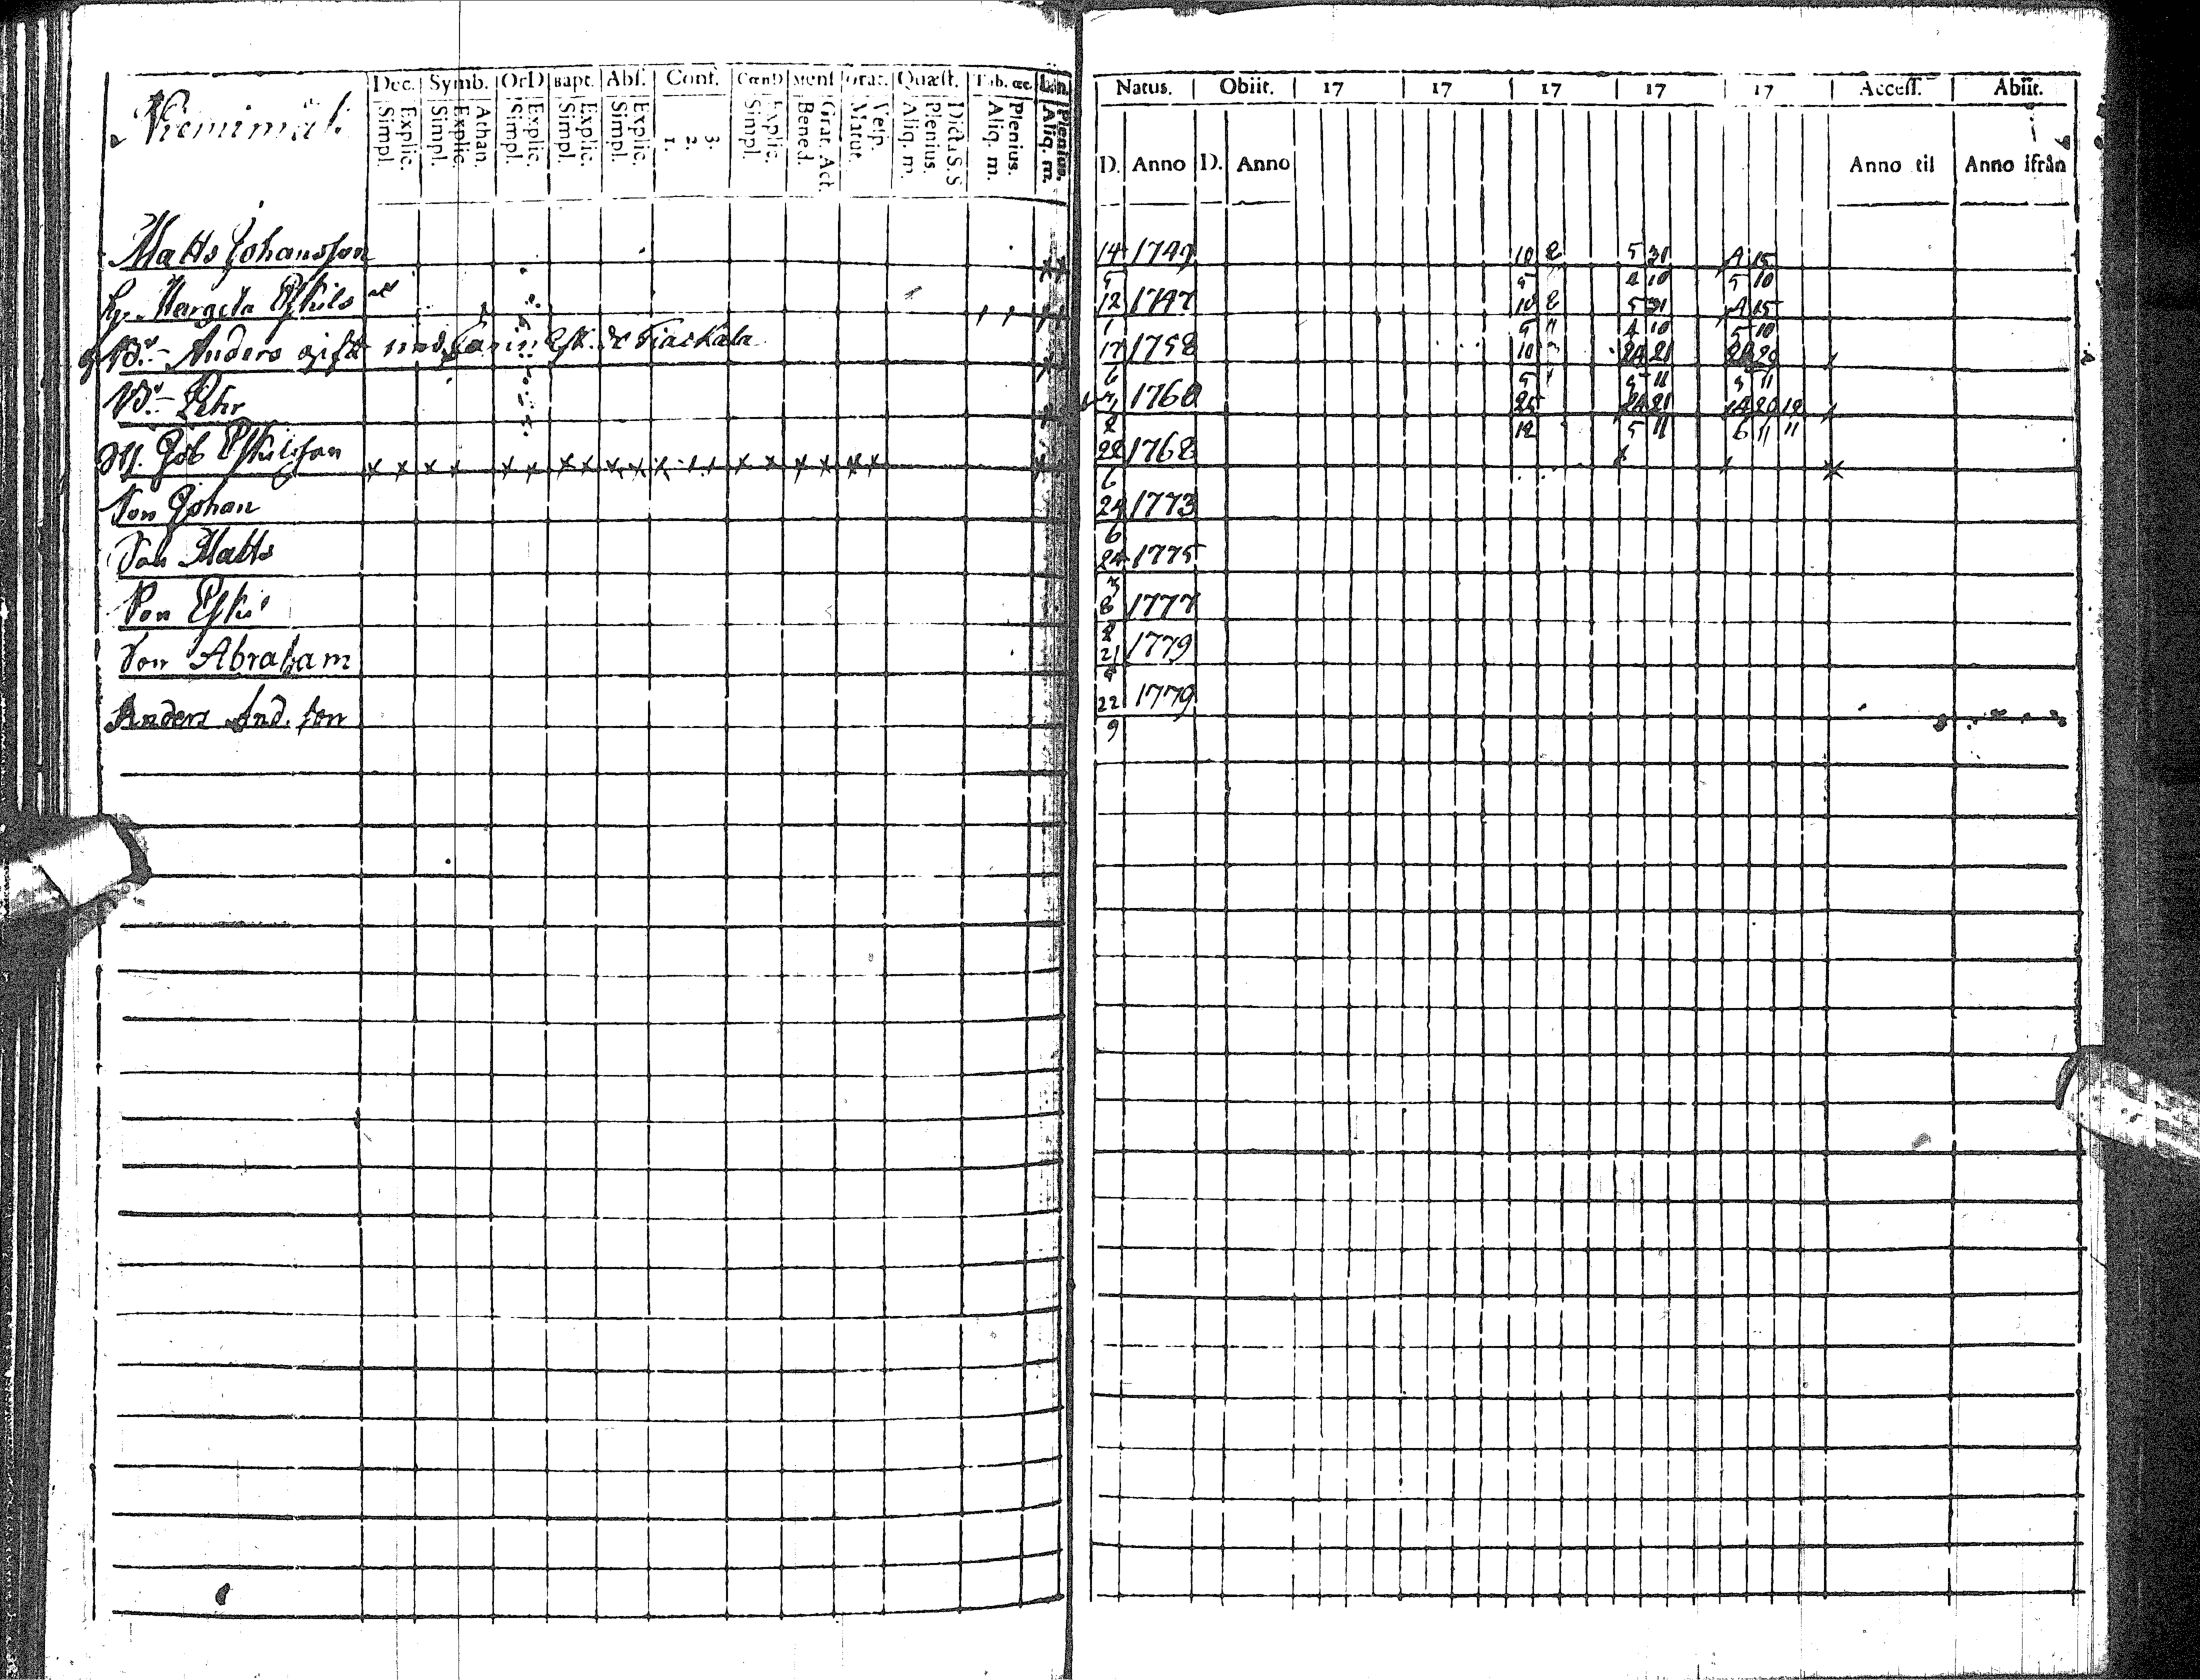 Niemimäk
Dec. Symb. OrD Bapt. Abs. Conf. CœnD Mens Orat. Quæst. Tab. œc.
Simpl. Explic. Simpl. Explic. Athan. Simpl. Explic. Simpl. Explic. Simpl. Explic. 1. 2. 3. Simpl. Explic. Bened. Grat. Act. Matut. Vesp. Aliq. m. Plenius. Dicta S. S Aliq. m. Plenius. Aliq. m. Plenius.
Natus. Obiit. 17 17 17 17 17 Access. Abiit.
D. Anno D. Anno Anno til Anno ifrån
Matts Johansson 14/5 1749 10/5 2 5/4 31/10 4/5 15/10
Hu. Margeta Eskils 12/1 1747 10/5 2 5/4 31/10 4/5 15/10
Br. Anders gift med Carin Esk. 17/6 1758 10/5 24/5 21/11 20/11
Br. Pehr 7/2 1760 25/12 24/5 21/11 14/6 20/11 12/11
Job Eskilsson 22/6 1768
Son Johan 24/6 1773
Son Matts 24/3 1775
Son Eskil 8/2 1777
Son Abraham 21 1779
Anders And. son 22/9 1779